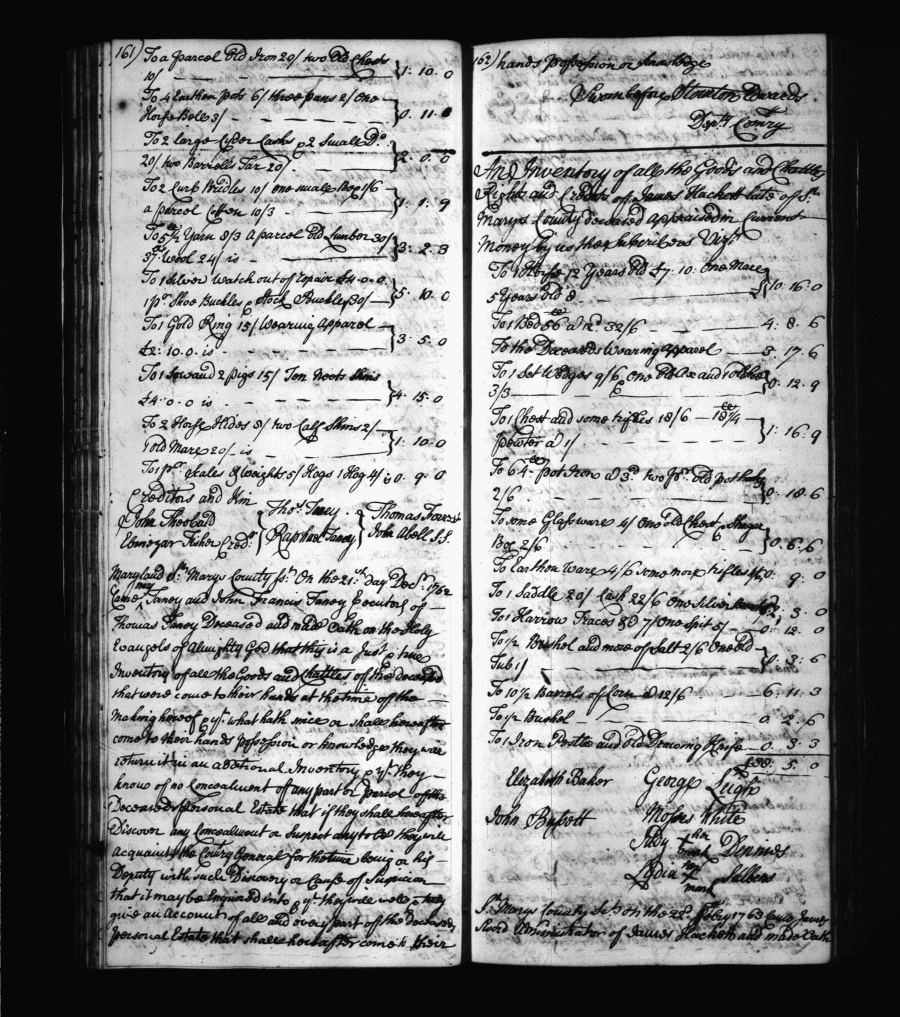 161) To a parcel Old Iron 20/ two Old Chests
10/ 1: 10: 0
To 4 Earthen pots 6/ three pans 2/ One
Horse Bell 3/ 0: 11: 0
To 2 large Cyder Casks & 2 Small Do.
20/ two Barrells Tar 20/ 2: 0: 0
To 2 Curb Bridles 10/ one small Box 1/6
a parcel Cotton 10/3 1: 1: 9
To 5 1/2 Yarn 8/3 A parcel Old Lumber 30/
Wool 24/ is 3: 2: 3
To 1 Silver Watch out of repair £4.0.0
1 pr. Shoe Buckles & Stock Buckle 30/ 5: 10: 0
To 1 Gold Ring 15/ Wearing Apparel
£2: 10.0 is 3: 5: 0
To 1 Sow and 2 pigs 15/ Ten Neets Skins
£4.0.0 is 4: 15: 0
To 2 Horse Hides 8/ two Calf Skins 2/
1 old Mare 20/ is 1: 10: 0
To 1 pr. Scales & Weights 5/ Hogs 1 Hog 4/ is 0: 9: 0
Creditors and Kin
John Theobald Thos. Taney Thomas
Ebenezar Fisher Credr. Raphael Taney John Abell S.S.
Maryland St. Marys County Ss. On the 21st. day Decr. 1762
Came Taney and John Francis Taney Executors of
Thomas Taney Deceased and made Oath on the Holy
Evangels of Almighty God that this is a Just & true
Inventory of all the Goods and Chattles of the deceased
that were come to their hands at the time of the
Making hereof & yt. what hath since or shall hereafter
come to their hands possession or knowledge they will
return it in an additional Inventory & yt. they
know of no Concealment of any part or parcel of the
Deceaseds personal Estate that if they shall hereafter
Discover any Concealment or Suspect any to be they will
acquaint the Comry General for the time being or his
Deputy with such Discovery or Cause of Suspicion
that it may be Enquired into & yt. they will well & truly
give an Account of all and every part of the deceaseds
personal Estate that shall hereafter come to their
162) hands possession or knowledge
Sworn before Stourton Edwards
Depty Comry
And Inventory of all the Goods and Chattles
Rights and Credits of James Hackett late of St.
Marys County deceased Appraised in Current
Money by us the Subscribers Vizt.
To 1 Horse 12 Years Old £7: 10: One Mare
5 Years Old 10: 16: 0
To 1 Bed 56 lb 4: 8: 6
To the Deceaseds Wearing Apparel 3: 17: 6
To 1 Set Wedges 9/6 One Old Ax and 1 old
3/3 0: 12: 9
To 1 Chest and some trifles 18/6 18 3/4
pewter a 1/ 1: 16: 9
To 64 lb pot Iron a 3d. two pr. old pot hooks
2/6 0: 18: 6
To some Glass ware 4/ One old Chest & Shugar
Box 2/6 0: 6: 6
To Earthen Ware 4/6 some more trifles 4/6 0: 9: 0
To 1 Saddle 20/ Cash 22/6 One Silver : 3: 0
To 1 Harrow Traces &c 7/ One Spit 5/ 0: 12: 0
To 1/2 Bushel and more of Salt 2/6 One Old
Tub 1/ 0: 3: 6
To 10 1/2 Barrels of Corn a 12/6 6: 11: 3
To 1/2 Bushel 0: 2: 6
To 1 Iron Pestle and old Drawing Knife 0: 3: 3
£38: 5: 0
Elizabeth Baker George Leigh
John Bissett Moses White
Judy her mark Dennis
Lydia her mark
St. Marys County Sct. on the 22d. Feby 1763 came James
Sword Administrator of James Hackett and made Oath